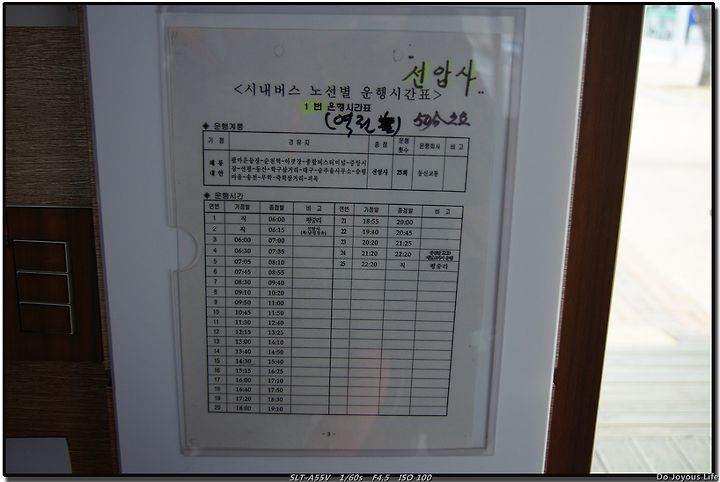 선암사
<시내버스 노선별 운행시간표>
1 번 운행시간표
◈ 운행계통
기 점 경 유 지 종 점 운행횟수 운행회사 비 고
선암사 25회 동신교통
◈ 운행시간
연번 기점발 종점발 비 고 연번 기점발 종점발 비 고
1 직 06:00 평중리 21 18:55 20:00
2 직 06:15 22 19:40 20:45
3 06:00 07:00 23 20:20 21:25
4 06:30 07:35 24 21:20 22:20
5 07:05 08:10 25 22:20 직 평중리
6 07:45 08:55
7 08:30 09:40
8 09:10 10:20
9 09:50 11:00
10 10:45 11:50
11 11:30 12:40
12 12:15 13:25
13 13:00 14:10
14 13:40 14:50
15 14:30 15:40
16 15:15 16:25
17 16:00 17:10
18 16:40 17:50
19 17:20 18:30
20 18:00 19:10
- 3 -
SLT-A55V 1/60s F4.5 ISO 100
Do Joyous Life